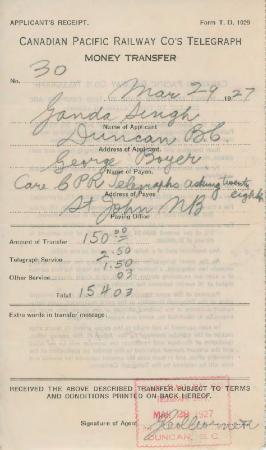 APPLICANT'S RECEIPT. Form T. D. 1029
CANADIAN PACIFIC RAILWAY CO'S TELEGRAPH
MONEY TRANSFER
No. 30
Mar 29 1927
Janda Singh
Name of Applicant
Duncan B.C.
Address of Applicant.
George Boyer
Name of Payee.
Care C P R Telegraphs asking twenty eight
Address of Payee
St John NB
Paying Office
Amount of Transfer 150.00
Telegraph Service 2.50
1.50
Other Service 03
Total 154.03
Extra words in transfer message:
RECEIVED THE ABOVE DESCRIBED TRANSFER SUBJECT TO TERMS
AND CONDITIONS PRINTED ON BACK HEREOF.
MAR 29 1927
Signature of Agent
DUNCAN, B.C.